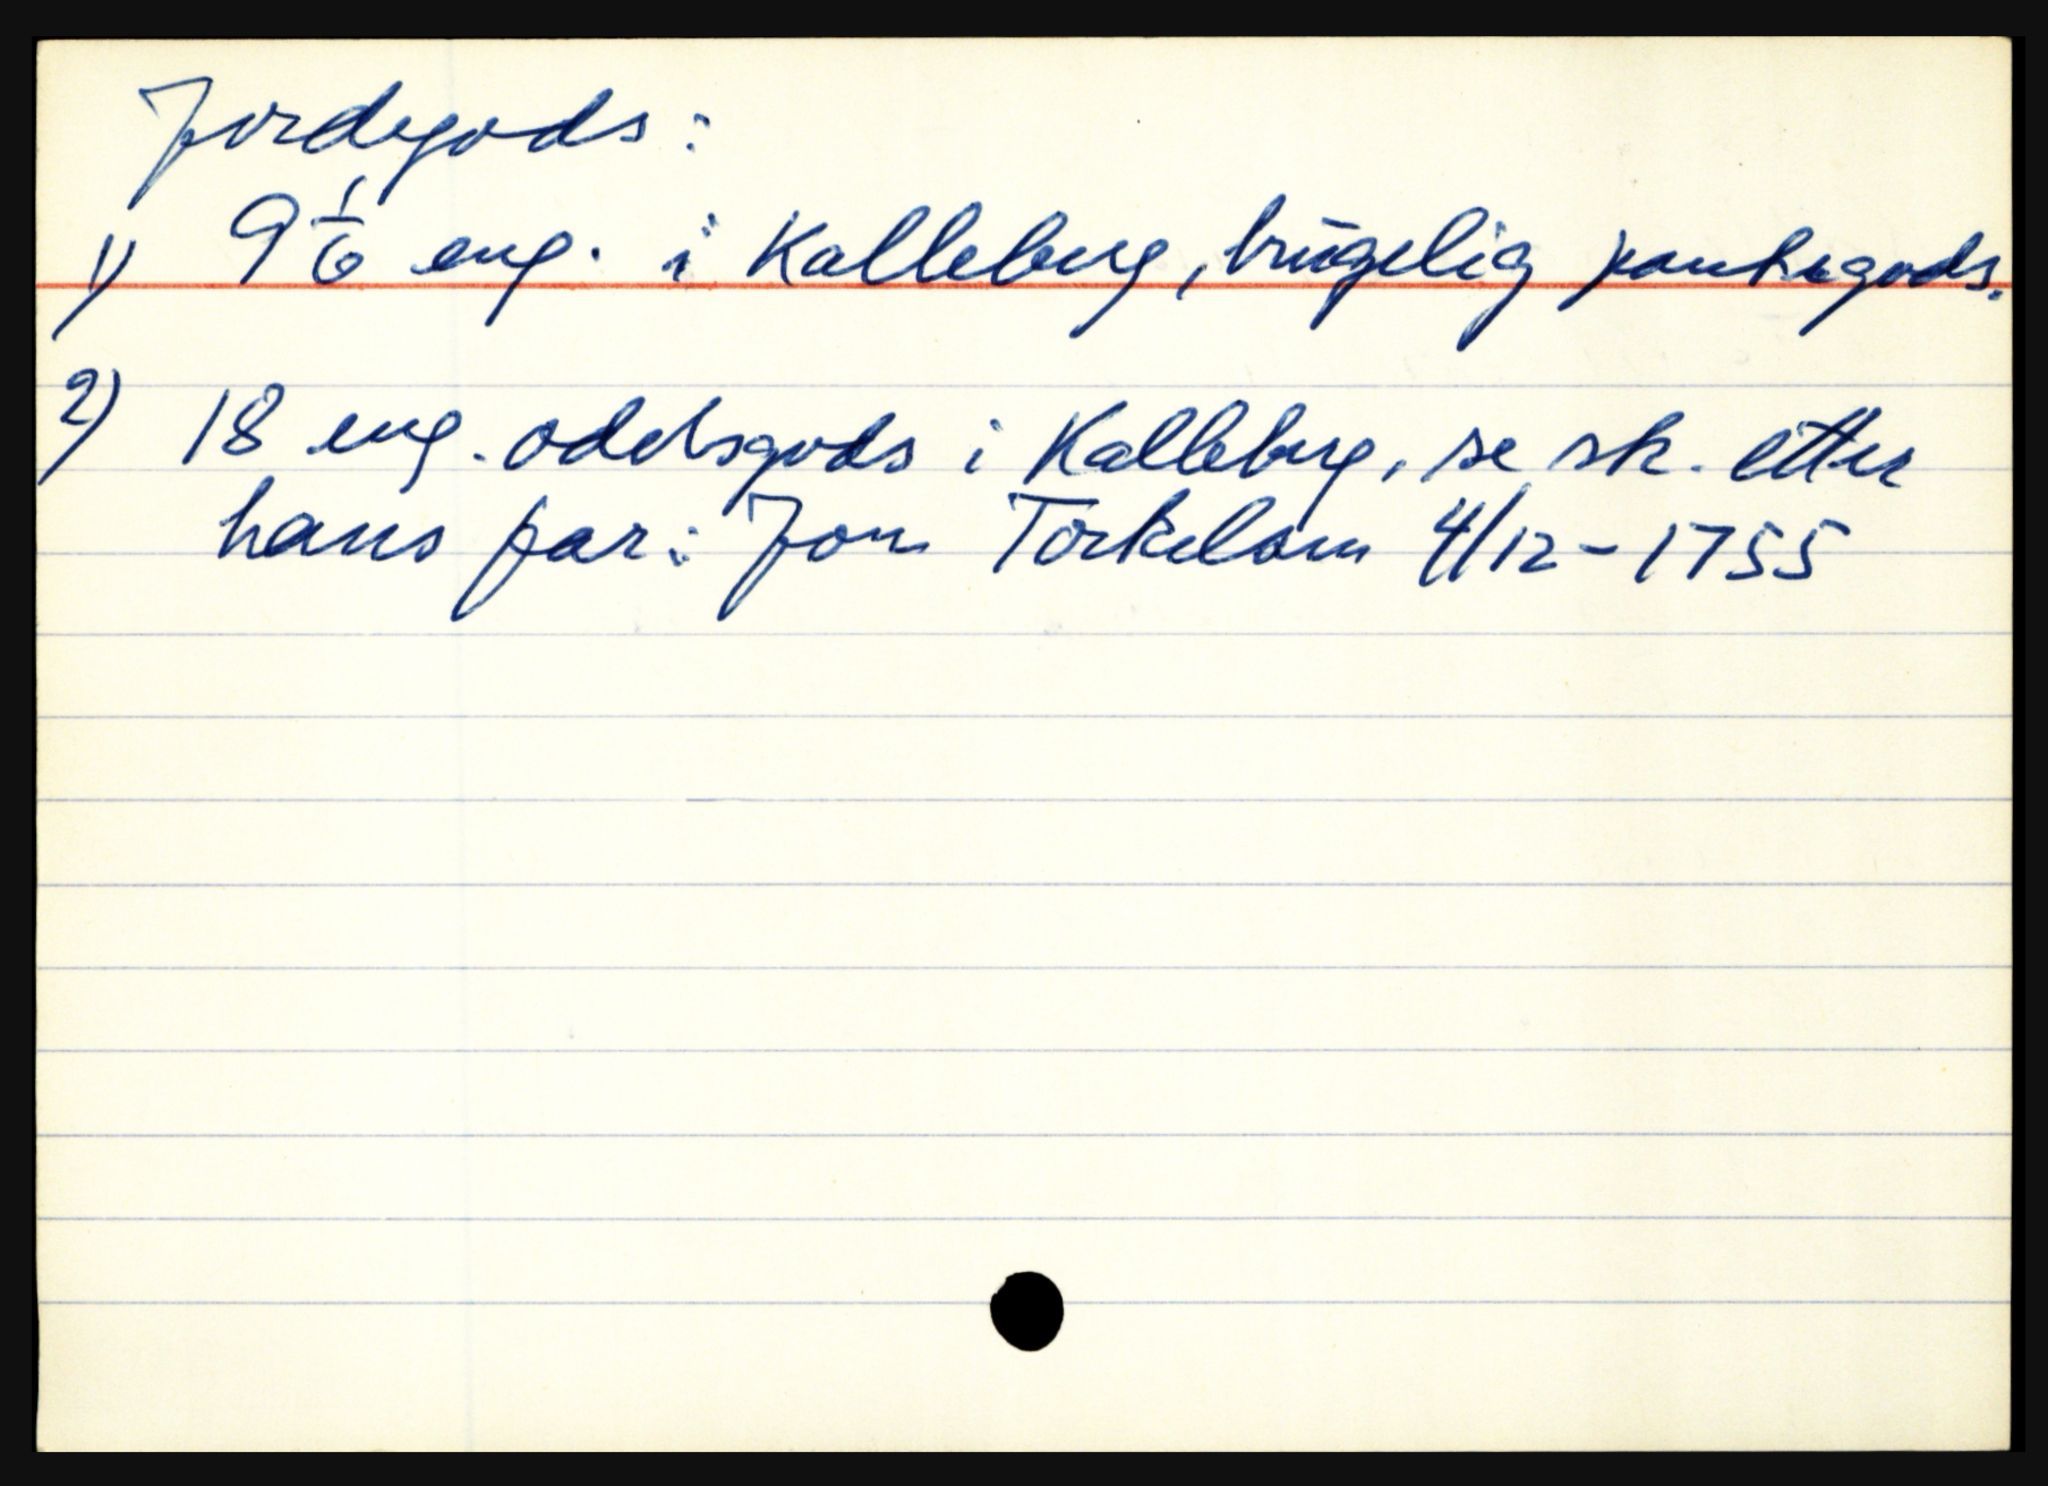 Jordegods:
1) 9 1/6 eng. i Kalleberg, brügelig pantegods.
2) 18 eng. odelsgods i Kalleberg, se sk. etter
hans far: Jon Torkelsen 4/12-1755